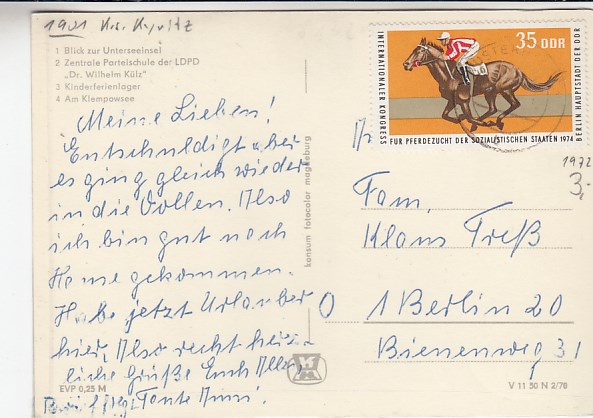 1901 Krs. Kyritz
1 Blick zur Unterseeinsel
2 Zentrale Parteischule der LDPD
„Dr. Wilhelm Külz"
3 Kinderferienlager
4 Am Klempowsee
Meine Lieben!
Entschuldigt aber
es ging gleich wieder
in die Vollen. Also
ich bin gut nach
Hause gekommen.
Habe jetzt Urlauber
hier, Also recht herz-
liche Grüße Euch Allen,
Tante Anni.
EVP 0,25 M
konsum fotocolor magdeburg
INTERNATIONALER KONGRESS
FÜR PFERDEZUCHT DER SOZIALISTISCHEN STAATEN 1974
BERLIN HAUPTSTADT DER DDR
35 DDR
1972
3,-
Fam.
Klaus Treß
1 Berlin 20
Bienenweg 31
V 11 50 N 2/70